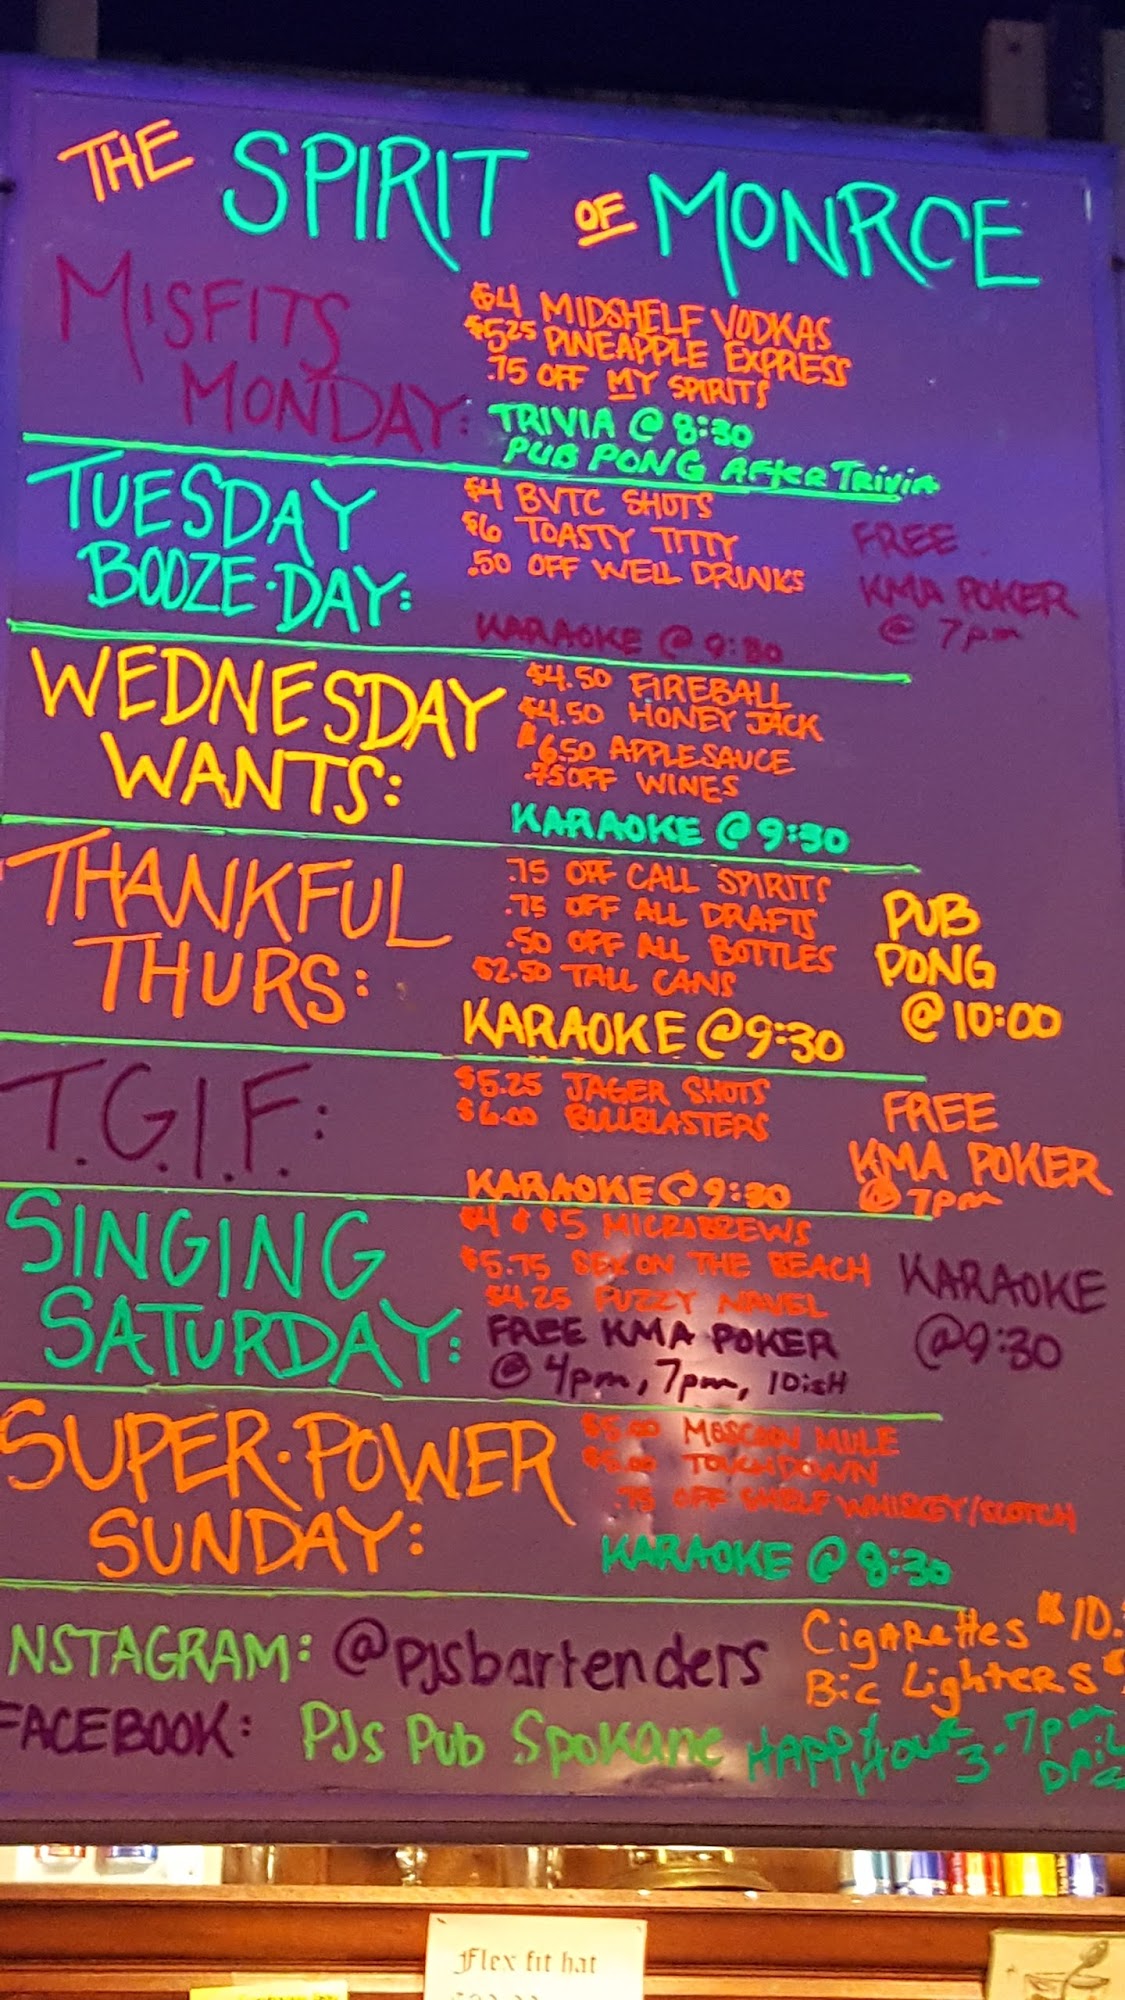 THE SPIRIT OF MONROE
MISFITS
MONDAY:
$4 MIDSHELF VODKAS
$5.25 PINEAPPLE EXPRESS
.75 OFF MY SPIRITS
TRIVIA @ 8:30
PUB PONG AFTER TRIVIA
TUESDAY
BOOZE·DAY:
$4 BVTC SHOTS
$6 TOASTY TITTY
.50 OFF WELL DRINKS
KARAOKE @ 9:30
FREE
KMA POKER
@ 7pm
WEDNESDAY
WANTS:
$4.50 FIREBALL
$4.50 HONEY JACK
$6.50 APPLESAUCE
.75 OFF WINES
KARAOKE @ 9:30
THANKFUL
THURS:
.75 OFF CALL SPIRITS
.75 OFF ALL DRAFTS
.50 OFF ALL BOTTLES
$2.50 TALL CANS
KARAOKE @ 9:30
PUB
PONG
@ 10:00
T.G.I.F.:
$5.25 JAGER SHOTS
$6.00 BULLBLASTERS
KARAOKE @ 9:30
FREE
KMA POKER
@ 7pm
SINGING
SATURDAY:
$4 & $5 MICROBREWS
$5.75 SEX ON THE BEACH
$4.25 FUZZY NAVEL
FREE KMA POKER
@ 4pm, 7pm, 10isH
KARAOKE
@ 9:30
SUPER·POWER
SUNDAY:
$5.00 MOSCOW MULE
$5.00 TOUCHDOWN
.75 OFF SHELF WHISKEY/SCOTCH
KARAOKE @ 8:30
NSTAGRAM: @pjsbartenders
FACEBOOK: PJs Pub Spokane
Cigarettes $10.
Bic Lighters $
Happy Hour 3-7pm
Flex fit hat